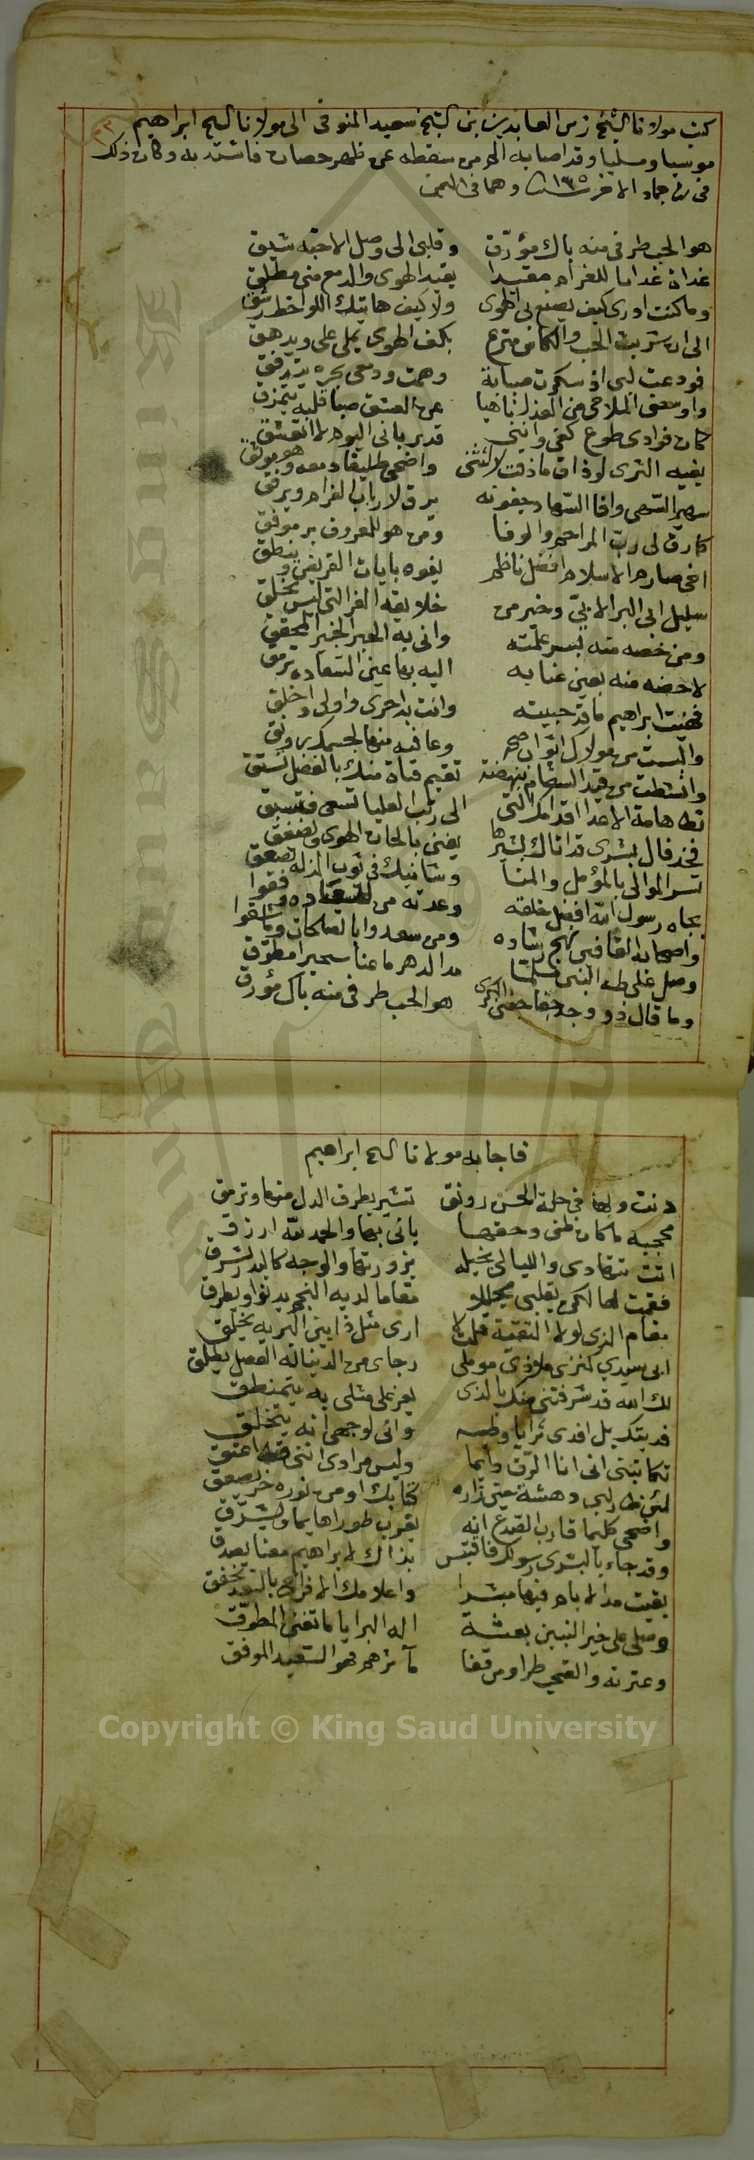 كتب مولانا الشيخ زين العابدين بن الشيخ سعيد المنوفي الى مولانا الشيخ ابراهيم
موسيا ومسليا وقد اصابه الم من سقطه عن ظهر حصان فاشتد به وكان ذلك
في جماد الاخر وهما في اليمن
هو الحب طرفي منه باك مؤرق وقلبي الى وصل الاحبة شيق
غداة غدا بالغرام مقيدا بقيد الهوى والدمع مني مطلق
وما كنت ادري كيف يصنع بي الهوى ولا كيف هاتيك اللواحظ ترشق
الى ان شربت الحب والكاس مترع بكف الهوى يملى على ويدهق
فودعت لبي اذ سكرت صبابة وهمت ودمعي بحره يتدفق
واوسعني الملاحي من العذل ناهيا عن العشق صبا قلبه يتمزق
كان فؤادي طوع كفي وانني قدير باني اليوم لا اتعشق
بفيه الثرى لو ذاق ما ذقت لانثنى واضحى طليقا دمعه وهو موثق
سهير الدجى وافا السهاد جفونه يرق لارباب الغرام ويرفق
كما رق لي رب المراحم والوفا ومن هو للمعروف بر موفق
اخي صارم الاسلام افضل ناظم يفوه بايات القريض وينطق
سليل ابي البر الابي وخير من خلايقه الغر التي ليس تخلق
ومن خصه منه بسر علمته واني به الحبر الخبير المحقق
لاحضه منه بعين عنايه اليه بها عين السعاده ترمق
فهنيت ابراهيم ما قد حبيته وانت بذا احرى واولى واخلق
والبست من مولاك اثواب صحة وعافية منها لجسمك رونق
وانشطت من قيد السقام بنهضة تقيم قناة منك بالفضل تسمق
تطا هامة الاعدا اقدامك التي الى رتب العليا تسعى فتسبق
فخذ فال بشرى قد اتاك بشيرها يغني بالحان الهوى ويصفق
تسر الموالي بالمؤمل والمنا وشانيك في ثوب المذلة يصعق
بجاه رسول الله افضل خلقه وعدته من
واصحابه القافين نهج رشاده ومن سعدوا بالصالحات
وصل على طه النبي مسلما مدا الدهر ما غنا سحيرا مطوق
وما قال ذو وجد جفا جفنه الكرى هو الحب طرفي منه باك مؤرق
فاجابه مولانا الشيخ ابراهيم
دنت ولها في حلة الحسن رونق تشير بطرف الدل منها وترمق
محجبة ما كان ظني وحقها باني بها والحمد لله ارزق
اتت تتهادى والليالي بخيلة بزورتها والوجه كالبدر يشرق
فقمت لها لكن بقلبي مجللا مقاما لديه النجم يدنو ويطرق
مقام الذي لولا التقية قلت لا ارى مثل ذا بين البرية يخلق
ابي سيدي كنزي ملاذي موملي رجائي من الدنيا له الفضل يطلق
لك الله قد شرفتني منك بالذي يعز على مثلي به يتمنطق
فديتك بل افدي ترابا وطيته واني لوجهي انه يتخلق
تكاتبني اني انا الرق دائما وليس مرادي انني منه اعتق
لئن طار لبي دهشة حين زاره كتابك او من نوره خر يصعق
واضحى كليما قارب الصدع انه بقرب طورا هايما ويشرق
وقد جاء بالبشرى رسولك فاقتبس بذا لابراهيم معنا يصدق
بقيت مدا الايام فينا مبشرا واعلامك الافراح بالسعد تخفق
وصلى على خير النبيين بعثة اله البرايا ما تغنى المطوق
وعترته والصحب طرا ومن قفا مآثرهم فهو السعيد الموفق
Copyright © King Saud University